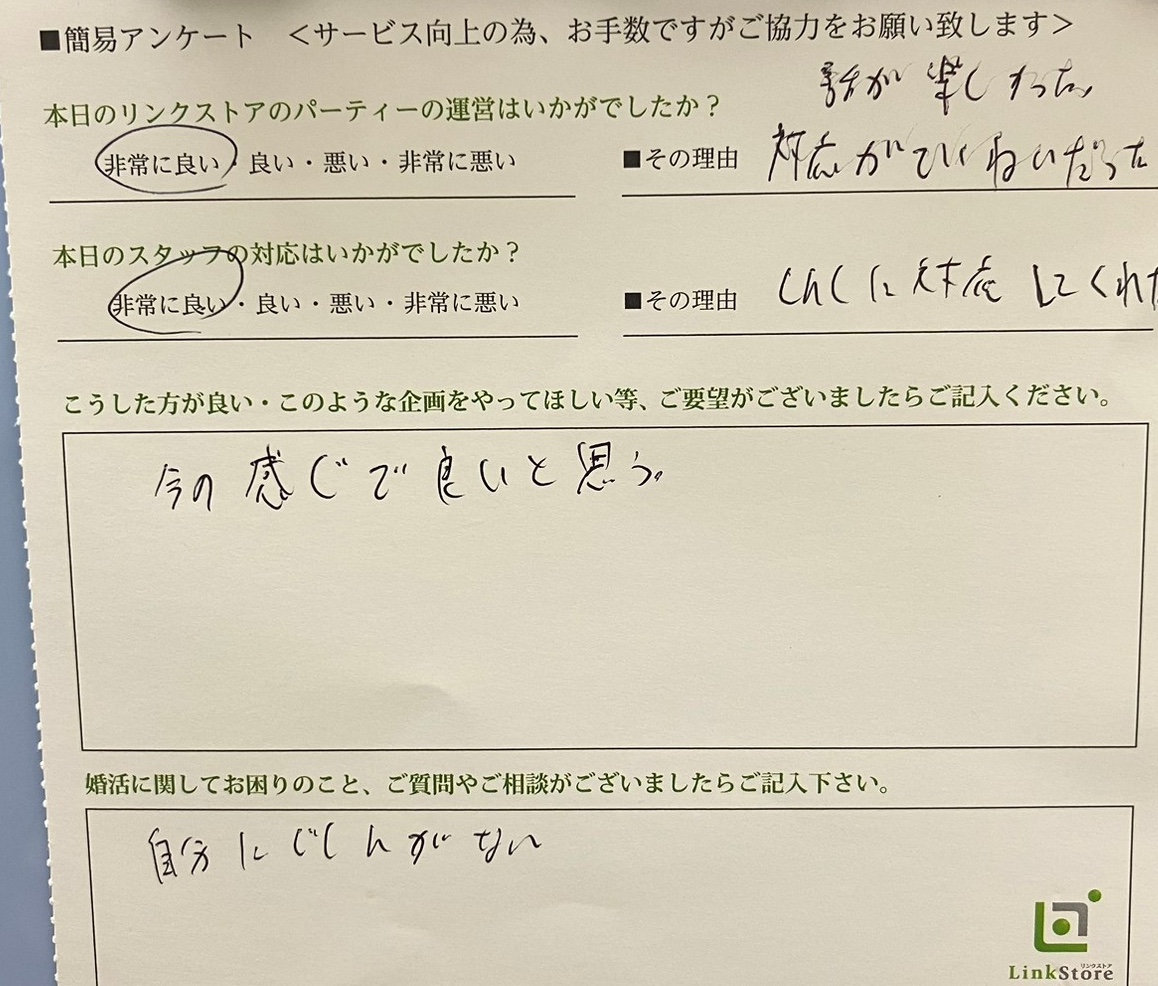 ■簡易アンケート <サービス向上の為、お手数ですがご協力をお願い致します>
本日のリンクストアのパーティーの運営はいかがでしたか?
非常に良い・良い・悪い・非常に悪い
話が楽しすった、
■その理由 対応がていねいだった
本日のスタッフの対応はいかがでしたか?
非常に良い・良い・悪い・非常に悪い
■その理由 しんしに対応してくれた
こうした方が良い・このような企画をやってほしい等、ご要望がございましたらご記入ください。
今の感じで良いと思う。
婚活に関してお困りのこと、ご質問やご相談がございましたらご記入下さい。
自分にじしんがない
リンクストア
LinkStore